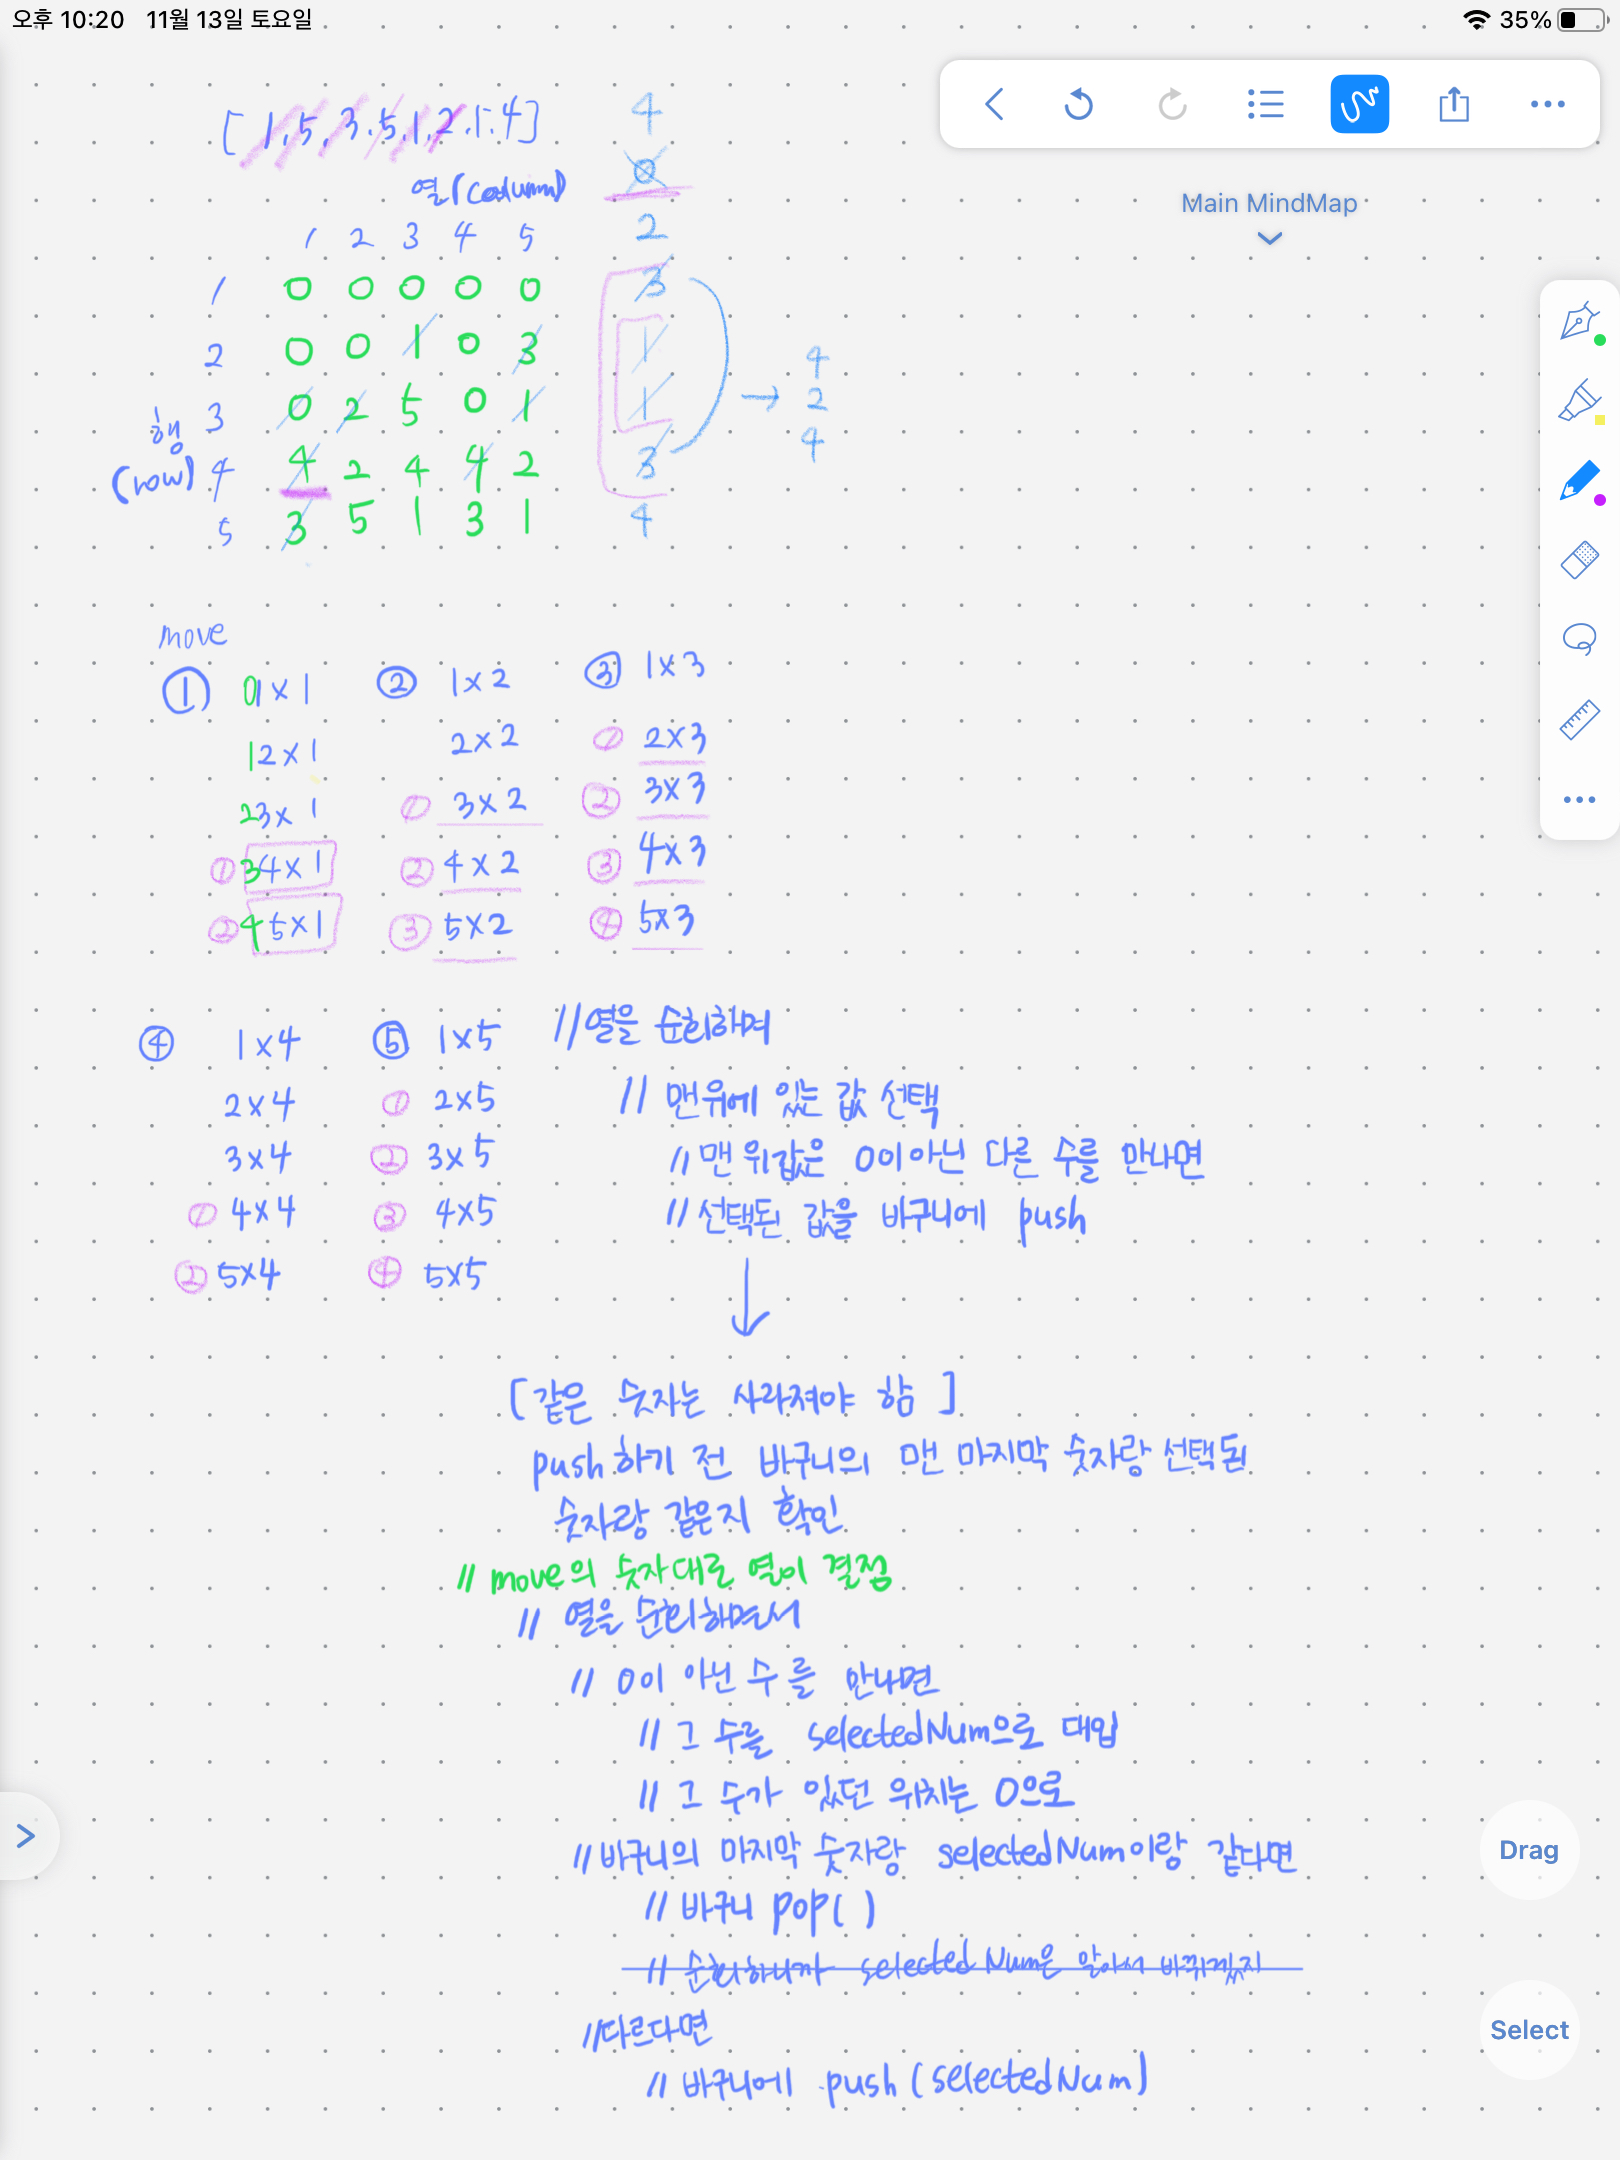 오후 10:20 11월 13일 토요일 35%
[ 1, 5, 3, 5, 1, 2, 1, 4 ]
Main MindMap
열(column)
1 2 3 4 5
1 0 0 0 0 0
2 0 0 1 0 3
3 0 2 5 0 1
행
(row) 4 4 2 4 4 2
5 3 5 1 3 1
4
0
2
3
1
1
3
4
→ 4
2
4
move
① 0 1 x 1
1 2 x 1
2 3 x 1
① 3 4 x 1
② 4 5 x 1
② 1 x 2
2 x 2
① 3 x 2
② 4 x 2
③ 5 x 2
③ 1 x 3
① 2 x 3
② 3 x 3
③ 4 x 3
④ 5 x 3
④ 1 x 4
2 x 4
3 x 4
① 4 x 4
② 5 x 4
⑤ 1 x 5
① 2 x 5
② 3 x 5
③ 4 x 5
④ 5 x 5
// 열을 순회하며
// 맨위에 있는 값 선택
// 맨 위값은 0이 아닌 다른 수를 만나면
// 선택된 값을 바구니에 push
↓
[ 같은 숫자는 사라져야 함 ]
push 하기 전 바구니의 맨 마지막 숫자랑 선택된
숫자랑 같은지 확인
// move의 숫자대로 열이 결정
// 열을 순회하면서
// 0이 아닌 수를 만나면
// 그 수를 selectedNum으로 대입
// 그 수가 있던 위치는 0으로
// 바구니의 마지막 숫자랑 selectedNum이랑 같다면
// 바구니 pop( )
// 순회하니까 selected Num은 알아서 바뀌겠지
// 다르다면
// 바구니에 push (selectedNum)
Drag
Select